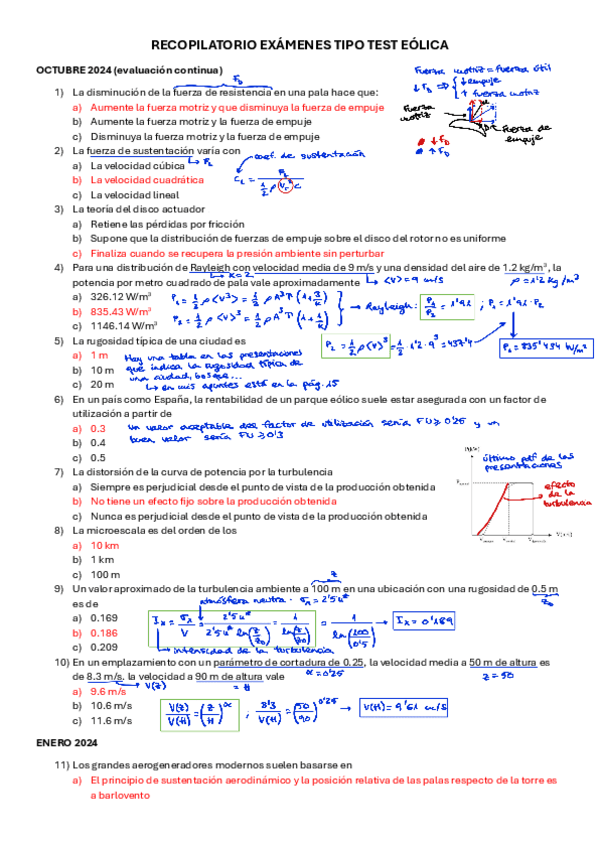 RECOPILATORIO EXÁMENES TIPO TEST EÓLICA
OCTUBRE 2024 (evaluación continua)
F_D
Fuerza motriz = Fuerza útil
1) La disminución de la fuerza de resistencia en una pala hace que:
↓F_D ⇒ { ↓ empuje
↑ fuerza motriz
a) Aumente la fuerza motriz y que disminuya la fuerza de empuje
b) Aumente la fuerza motriz y la fuerza de empuje
c) Disminuya la fuerza motriz y la fuerza de empuje
Fuerza motriz
Fuerza de empuje
↓F_D
↑F_D
2) La fuerza de sustentación varía con
coef. de sustentación
a) La velocidad cúbica
b) La velocidad cuadrática
c) La velocidad lineal
3) La teoría del disco actuador
a) Retiene las pérdidas por fricción
b) Supone que la distribución de fuerzas de empuje sobre el disco del rotor no es uniforme
c) Finaliza cuando se recupera la presión ambiente sin perturbar
4) Para una distribución de Rayleigh con velocidad media de 9 m/s y una densidad del aire de 1.2 kg/m³, la
potencia por metro cuadrado de pala vale aproximadamente
K=2
<v> = 9 m/s
ρ = 1'2 kg/m³
a) 326.12 W/m³
b) 835.43 W/m³
c) 1146.14 W/m³
Rayleigh: P₁/P₂ = 1'91 ; P₁ = 1'91 · P₂
5) La rugosidad típica de una ciudad es
P₂ = 1/2 ρ <v>³ = 1/2 · 1'2 · 9³ = 437'4
P₁ = 835'434 W/m²
a) 1 m
b) 10 m
c) 20 m
Hay una tabla en las presentaciones
que indica la rugosidad típica de
una ciudad, bosque...
↳ en mis apuntes está en la pág. 15
6) En un país como España, la rentabilidad de un parque eólico suele estar asegurada con un factor de
utilización a partir de
a) 0.3
b) 0.4
c) 0.5
Un valor aceptable del factor de utilización sería FU ≥ 0'25 y un
buen valor sería FU ≥ 0'3
7) La distorsión de la curva de potencia por la turbulencia
a) Siempre es perjudicial desde el punto de vista de la producción obtenida
b) No tiene un efecto fijo sobre la producción obtenida
c) Nunca es perjudicial desde el punto de vista de la producción obtenida
último pdf de las
presentaciones
efecto
de la
turbulencia
8) La microescala es del orden de los
a) 10 km
b) 1 km
c) 100 m
9) Un valor aproximado de la turbulencia ambiente a 100 m en una ubicación con una rugosidad de 0.5 m
es de
z
z₀
atmósfera neutra · σ_x = 2'5 u*
a) 0.169
b) 0.186
c) 0.209
I_x = σ_x/V = 2'5u*/(2'5u* ln(z/z₀)) = 1/ln(z/z₀) = 1/ln(100/0'5) → I_x = 0'189
intensidad de la turbulencia
10) En un emplazamiento con un parámetro de cortadura de 0.25, la velocidad media a 50 m de altura es
de 8.3 m/s. la velocidad a 90 m de altura vale
V(z)
= H
α = 0'25
z = 50
a) 9.6 m/s
b) 10.6 m/s
c) 11.6 m/s
V(z)/V(H) = (z/H)^α ; 8'3/V(H) = (50/90)^0'25 → V(H) = 9'61 m/s
ENERO 2024
11) Los grandes aerogeneradores modernos suelen basarse en
a) El principio de sustentación aerodinámico y la posición relativa de las palas respecto de la torre es
a barlovento